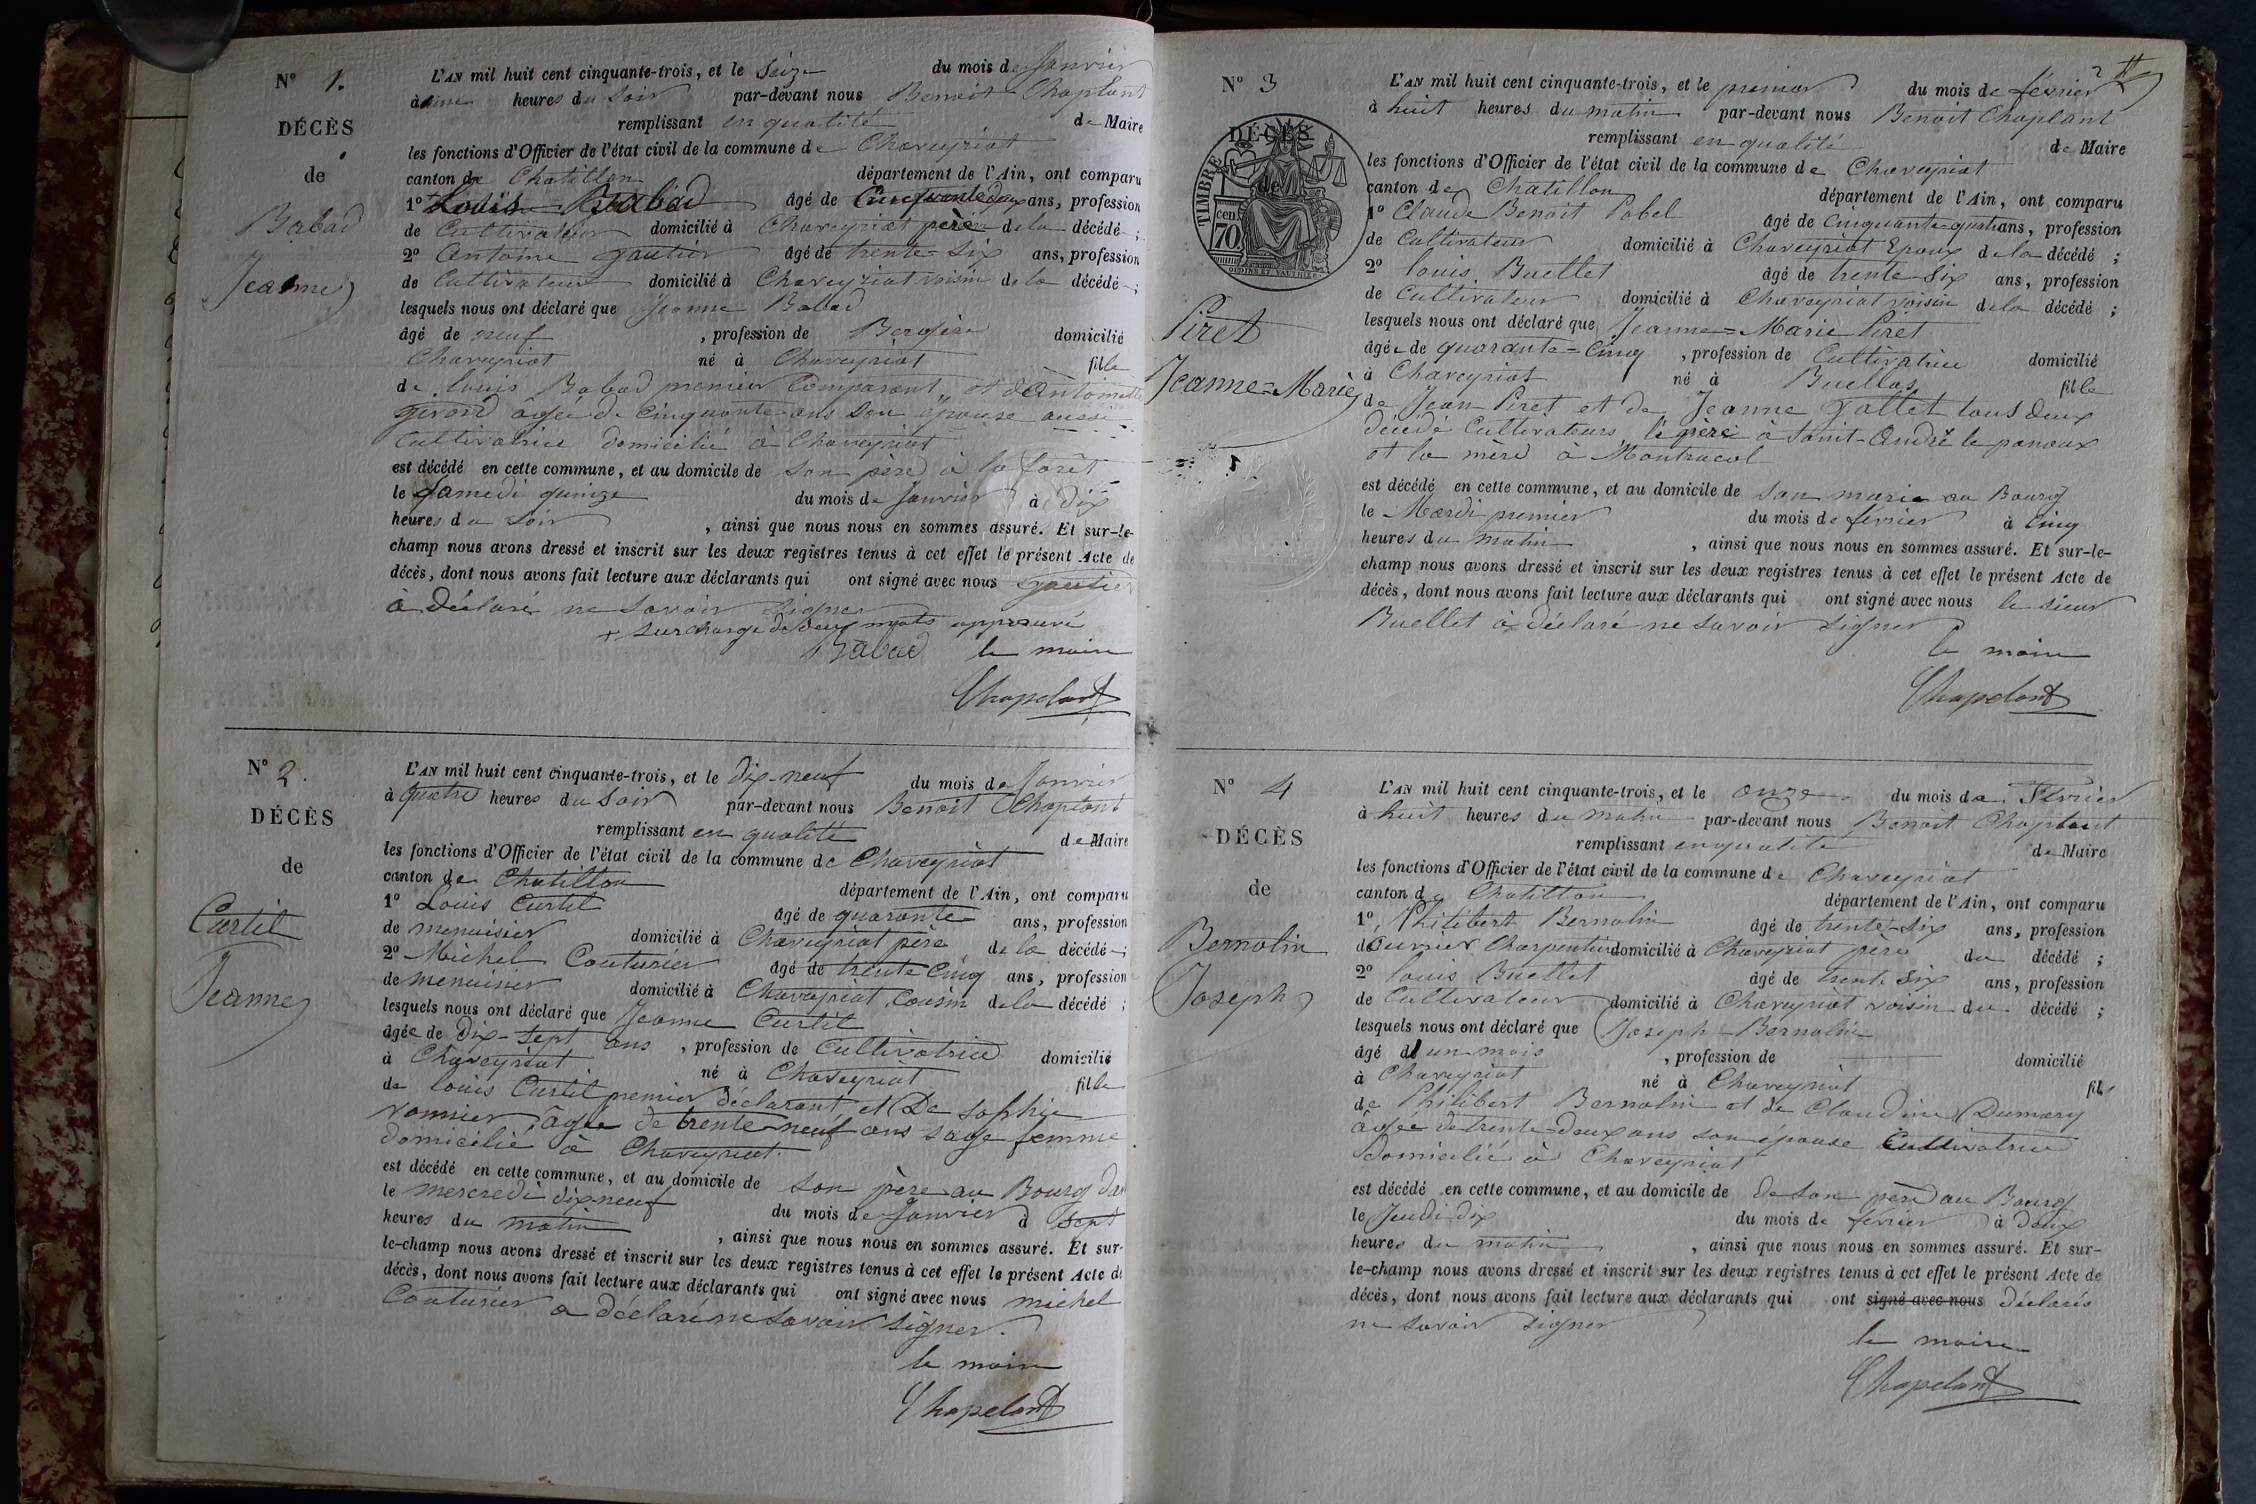 N° 1.
DÉCÈS
de
Babad
Jeanne
L'AN mil huit cent cinquante-trois, et le Seize du mois de Janvier
heures du Soir par-devant nous Benoit Chaplant
remplissant en qualité de Maire
les fonctions d'Officier de l'état civil de la commune de Chaveyriat
canton de Chatillon département de l'Ain, ont comparu
1° Louis Babad âgé de Cinquante deux ans, profession
de Cultivateur domicilié à Chaveyriat père de la décédé ;
2° Antoine gautier âgé de trente-Six ans, profession
de Cultivateur domicilié à Chaveyriat voisin de la décédé ;
lesquels nous ont déclaré que Jeanne Babad
âgé de neuf , profession de Bergère domicilié
Chaveyriat né à Chaveyriat fille
de Louis Babad premier Comparant et d'Antoinette
girond âgée de Cinquante ans Son épouse aussi
Cultivatrice domicilié à Chaveyriat
est décédé en cette commune, et au domicile de Son père à la forêt
le Samedi quinze du mois de Janvier à dix
heures du Soir , ainsi que nous nous en sommes assuré. Et sur-le-
champ nous avons dressé et inscrit sur les deux registres tenus à cet effet le présent Acte de
décès, dont nous avons fait lecture aux déclarants qui ont signé avec nous gautier
à Déclaré ne Savoir Signer
+ Surcharge de deux mots approuvé
Babad le maire
Chapelant
N° 2.
DÉCÈS
de
Curtil
Jeanne
L'AN mil huit cent cinquante-trois, et le dix-neuf du mois de Janvier
à quatre heures du Soir par-devant nous Benoit Chaplant
remplissant en qualité de Maire
les fonctions d'Officier de l'état civil de la commune de Chaveyriat
canton de Chatillon département de l'Ain, ont comparu
1° Louis Curtil âgé de quarante ans, profession
de menuisier domicilié à Chaveyriat père de la décédé ;
2° Michel Couturier âgé de trente Cinq ans, profession
de menuisier domicilié à Chaveyriat Cousin de la décédé ;
lesquels nous ont déclaré que Jeanne Curtil
âgée de Dix-Sept ans , profession de Cultivatrice domicilié
à Chaveyriat né à Chaveyriat fille
de Louis Curtil premier déclarant et De Sophie
vonnier, âgée de trente-neuf ans Sage femme
domicilié à Chaveyriat
est décédé en cette commune, et au domicile de Son père au Bourg
le mercredi dix-neuf du mois de Janvier à Sept
heures du matin , ainsi que nous nous en sommes assuré. Et sur-
le-champ nous avons dressé et inscrit sur les deux registres tenus à cet effet le présent Acte de
décès, dont nous avons fait lecture aux déclarants qui ont signé avec nous michel
Couturier a déclaré ne Savoir Signer.
le maire
Chapelant
2
N° 3
DÉCÈS
de
TIMBRE
70 cen
Piret
Jeanne=Marie
L'AN mil huit cent cinquante-trois, et le premier du mois de février
à huit heures du matin par-devant nous Benoit Chaplant
remplissant en qualité de Maire
les fonctions d'Officier de l'état civil de la commune de Chaveyriat
canton de Chatillon département de l'Ain, ont comparu
1° Claude Benoit Pobel âgé de Cinquante-quatre ans, profession
de Cultivateur domicilié à Chaveyriat Epoux de la décédé ;
2° Louis Buellet âgé de trente Six ans, profession
de Cultivateur domicilié à Chaveyriat voisin de la décédé ;
lesquels nous ont déclaré que Jeanne=Marie Piret
âgée de quarante=Cinq , profession de Cultivatrice domicilié
à Chaveyriat né à Buellas fille
de Jean Piret et de Jeanne gallet tous deux
décédé Cultivateurs, le père à Saint-André le panoux
et la mère à Montracol
est décédé en cette commune, et au domicile de Son mari au Bourg
le Mardi premier du mois de février à Cinq
heures du matin , ainsi que nous nous en sommes assuré. Et sur-le-
champ nous avons dressé et inscrit sur les deux registres tenus à cet effet le présent Acte de
décès, dont nous avons fait lecture aux déclarants qui ont signé avec nous le sieur
Buellet à déclaré ne Savoir Signer
le maire
Chapelant
N° 4
DÉCÈS
de
Bernolin
Joseph
L'AN mil huit cent cinquante-trois, et le onze du mois de Février
à huit heures du matin par-devant nous Benoit Chaplant
remplissant en qualité de Maire
les fonctions d'Officier de l'état civil de la commune de Chaveyriat
canton de Chatillon département de l'Ain, ont comparu
1° Philibert Bernolin âgé de trente-Six ans, profession
d'ouvrier Charpentier domicilié à Chaveyriat père du décédé ;
2° Louis Buellet âgé de trente Six ans, profession
de Cultivateur domicilié à Chaveyriat voisin du décédé ;
lesquels nous ont déclaré que Joseph Bernolin
âgé d'un mois , profession de domicilié
à Chaveyriat né à Chaveyriat fils
de Philibert Bernolin et de Claudine Dumary
âgée de trente-Deux ans Son épouse Cultivatrice
Domicilié à Chaveyriat
est décédé en cette commune, et au domicile de de Son père au Bourg
le Jeudi dix du mois de février à Deux
heures du matin , ainsi que nous nous en sommes assuré. Et sur-
le-champ nous avons dressé et inscrit sur les deux registres tenus à cet effet le présent Acte de
décès, dont nous avons fait lecture aux déclarants qui ont signé avec nous déclarés
ne Savoir Signer
le maire
Chapelant